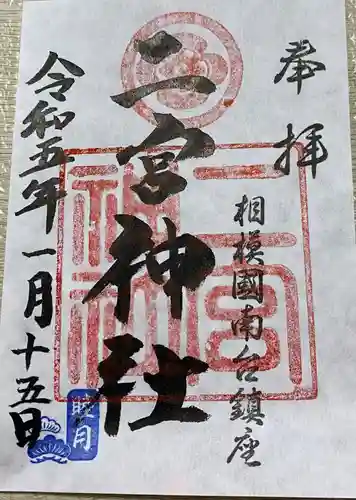 奉拝
相模國南台鎮座
二宮神社
二宮神社
令和五年一月十五日
睦月